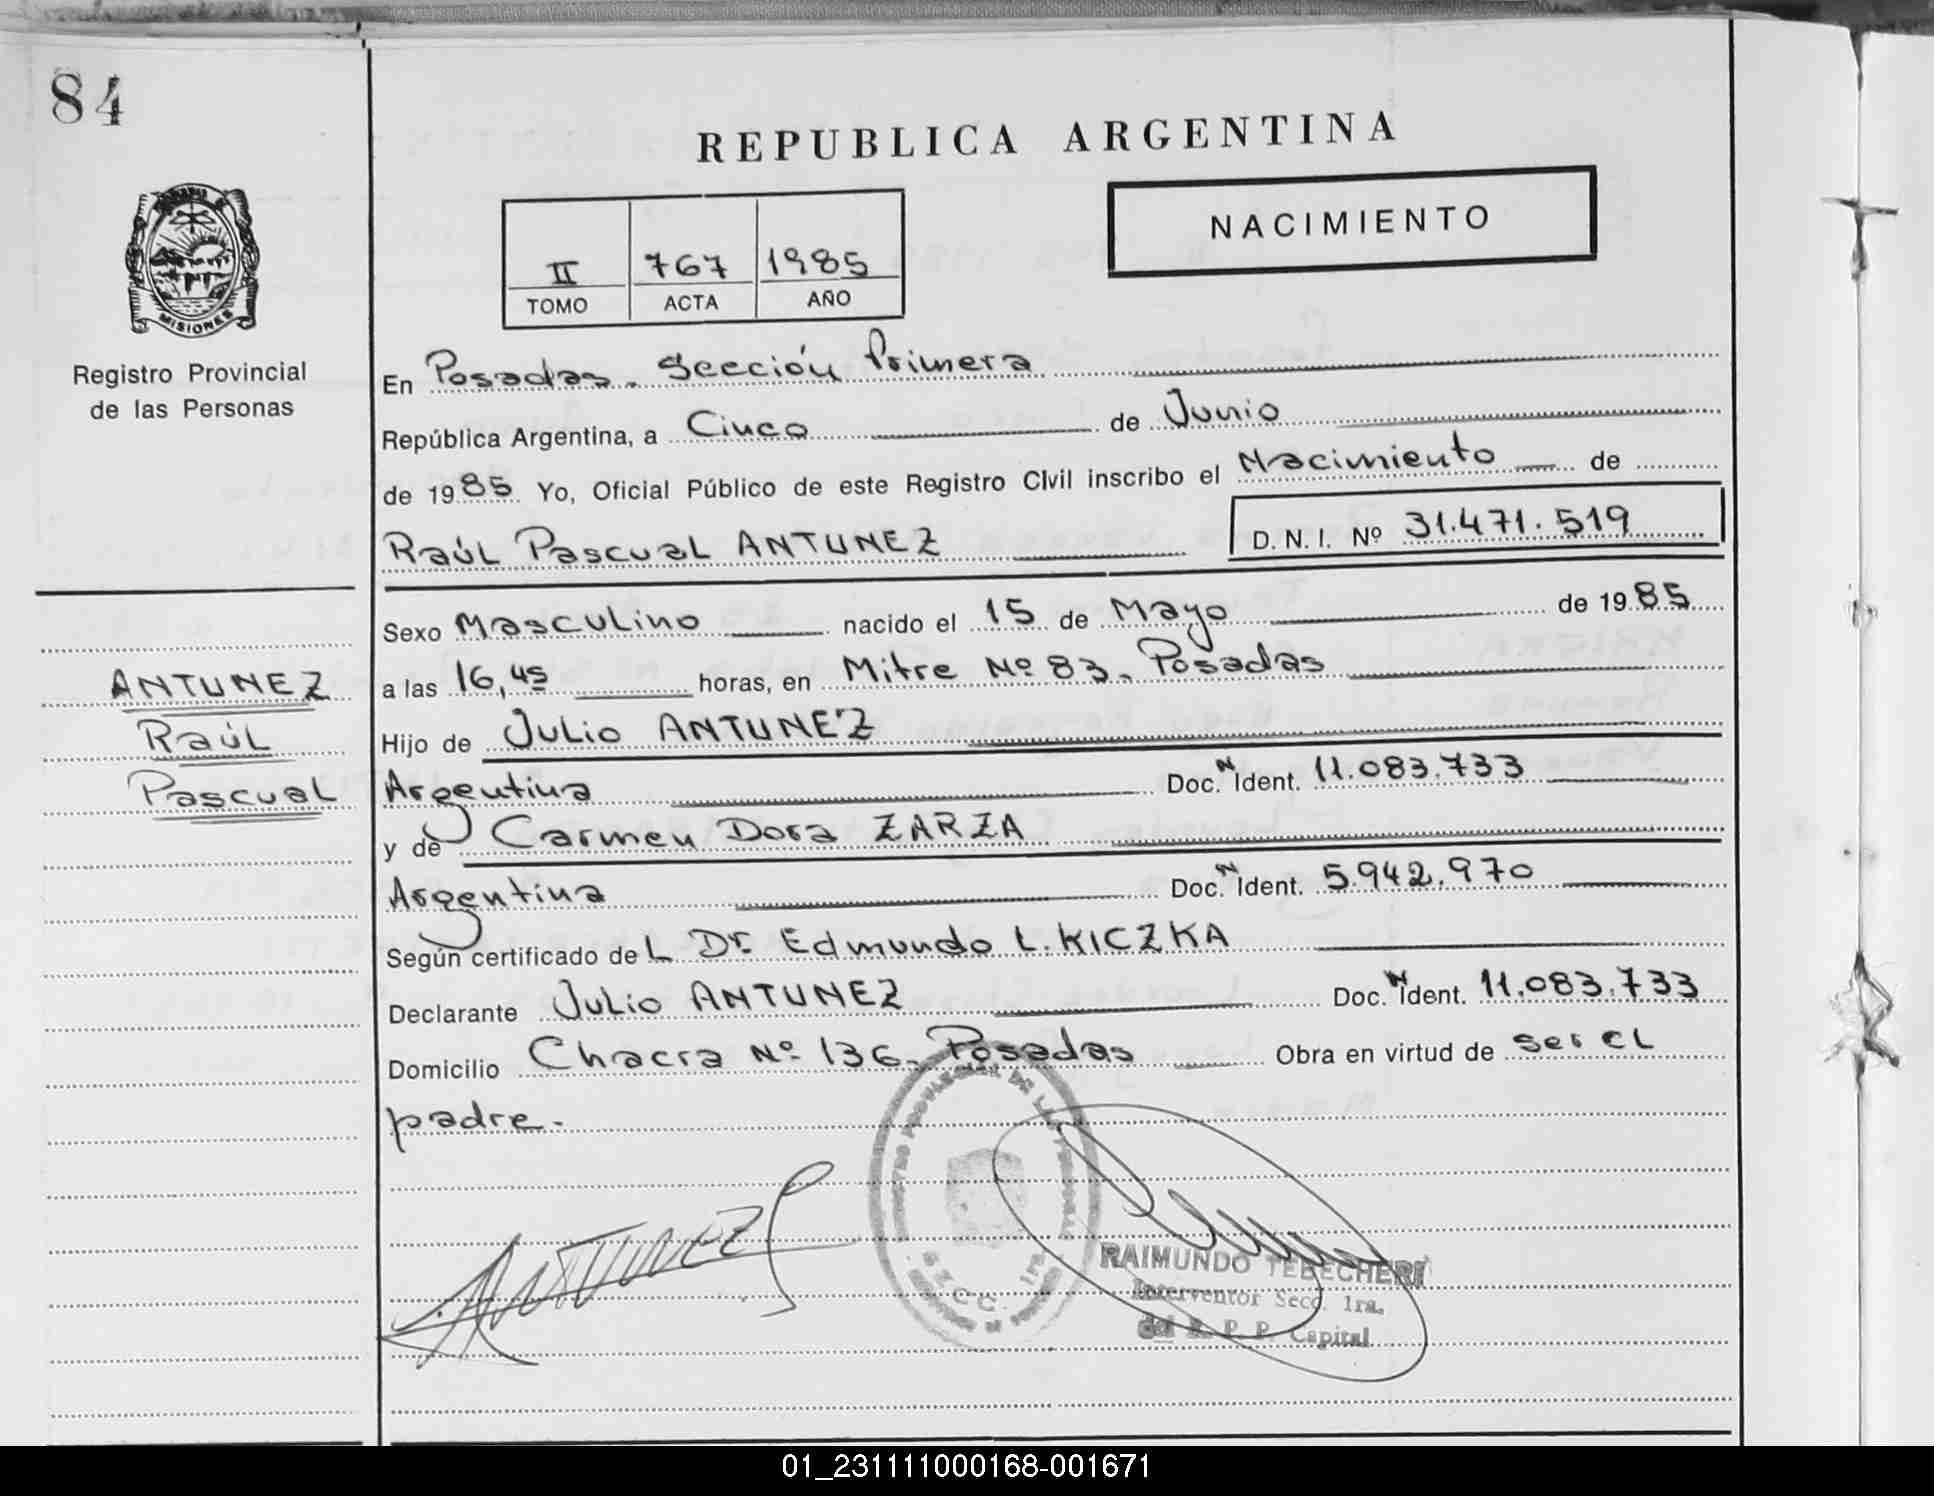 84
REPUBLICA ARGENTINA
NACIMIENTO
II 767 1985
TOMO ACTA AÑO
MISIONES
Registro Provincial
de las Personas
En Posadas. Sección Primera
República Argentina, a Cinco de Junio
de 1985 Yo, Oficial Público de este Registro Civil inscribo el Nacimiento de
Raúl Pascual ANTUNEZ D.N.I. Nº 31.471.519
Sexo Masculino nacido el 15 de Mayo de 1985
a las 16,45 horas, en Mitre Nº 83. Posadas
Hijo de Julio ANTUNEZ
Argentina Doc. N Ident. 11.083.733
y de Carmen Dora ZARZA
Argentina Doc. N Ident. 5.942.970
Según certificado del Dr. Edmundo L. KICZKA
Declarante Julio ANTUNEZ Doc. N Ident. 11.083.733
Domicilio Chacra Nº 136. Posadas Obra en virtud de ser el
padre.
ANTUNEZ
Raúl
Pascual
ANTUNEZ
REGISTRO PROVINCIAL DE LAS PERSONAS
RAIMUNDO TEBECHERI
Interventor Secc. 1ra.
del R. P. P. Capital
01_231111000168-001671